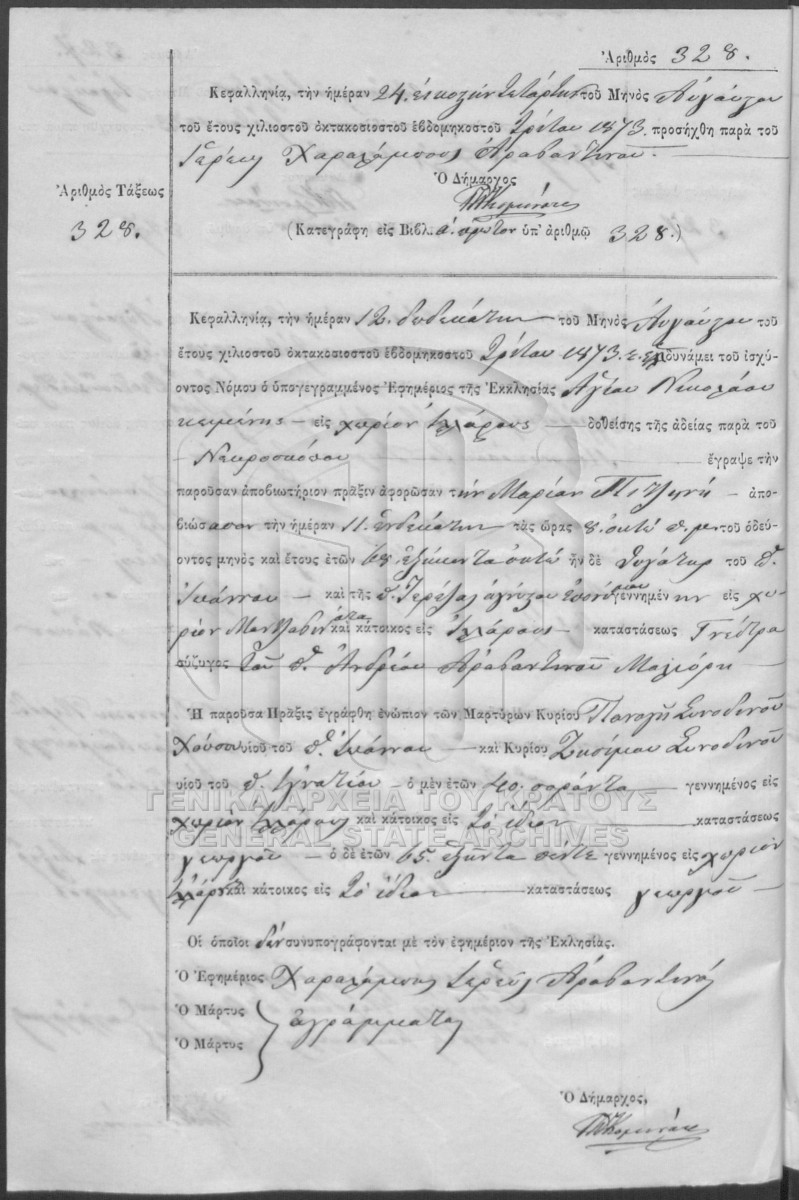 Ἀριθμὸς 328.
Κεφαλληνίᾳ, τὴν ἡμέραν 24. εἰκοστὴν τετάρτην τοῦ Μηνὸς Αὐγούστου
τοῦ ἔτους χιλιοστοῦ ὀκτακοσιοστοῦ ἑβδομηκοστοῦ τρίτου 1873. προσήχθη παρὰ τοῦ
Ἱερέως Χαραλάμπους Ἀραβαντινοῦ
Ὁ Δήμαρχος
Ἀριθμὸς Τάξεως
328.
(Κατεγράφη εἰς Βιβλ. α. πρῶτον ὑπ' ἀριθμῷ 328.)
Κεφαλληνίᾳ, τὴν ἡμέραν 12. δωδεκάτην τοῦ Μηνὸς Αὐγούστου τοῦ
ἔτους χιλιοστοῦ ὀκτακοσιοστοῦ ἑβδομηκοστοῦ τρίτου 1873. δυνάμει τοῦ ἰσχύ-
οντος Νόμου ὁ ὑπογεγραμμένος Ἐφημέριος τῆς Ἐκκλησίας Ἁγίου Νικολάου
κειμένης εἰς χωρίον δοθείσης τῆς ἀδείας παρὰ τοῦ
Νεκροσκόπου ἔγραψε τὴν
παροῦσαν ἀποβιωτήριον πρᾶξιν ἀφορῶσαν τὴν Μαρίαν ἀπο-
βιώσασαν τὴν ἡμέραν 11. ἑνδεκάτην τὰς ὥρας 8. ὀκτὼ π. μ. τοῦ ὁδεύ-
οντος μηνὸς καὶ ἔτους ἐτῶν 68. ἑξήκοντα ὀκτὼ ἦν δὲ θυγάτηρ τοῦ π.
Ἰωάννου καὶ τῆς π. Τερέζας ἀγνώστου ἐπονύμου γεννημένην εἰς χω-
ρίον καὶ κάτοικος εἰς καταστάσεως
σύζυγος τοῦ π. Ἀνδρέου Ἀραβαντινοῦ
Ἡ παροῦσα Πρᾶξις ἐγράφθη ἐνώπιον τῶν Μαρτύρων Κυρίου Παναγῆ Συνοδινοῦ
υἱοῦ τοῦ π. Ἰωάννου καὶ Κυρίου Ζησίμου Συνοδινοῦ
υἱοῦ τοῦ π. Ἰγνατίου ὁ μὲν ἐτῶν 40. σαράντα γεννημένος εἰς
χωρίον καὶ κάτοικος εἰς τὸ ἴδιον καταστάσεως
γεωργοῦ ὁ δὲ ἐτῶν 65. ἑξῆντα πέντε γεννημένος εἰς χωρίον
καὶ κάτοικος εἰς τὸ ἴδιον καταστάσεως γεωργοῦ
Οἱ ὁποῖοι δὲν συνυπογράφονται μὲ τὸν ἐφημέριον τῆς Ἐκλησίας.
Ὁ Ἐφημέριος Χαραλάμπης Ἱερεὺς Ἀραβαντινός
Ὁ Μάρτυς
ἀγράμματοι
Ὁ Μάρτυς
Ὁ Δήμαρχος,
ΓΕΝΙΚΑ ΑΡΧΕΙΑ ΤΟΥ ΚΡΑΤΟΥΣ
GENERAL STATE ARCHIVES